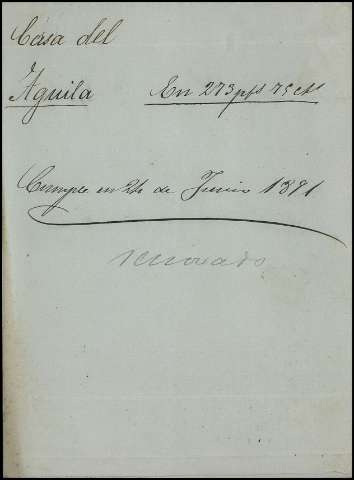 Casa del
Aguila En 273 pfs 75 cts
Cumple en 24 de Junio 1881
renovado